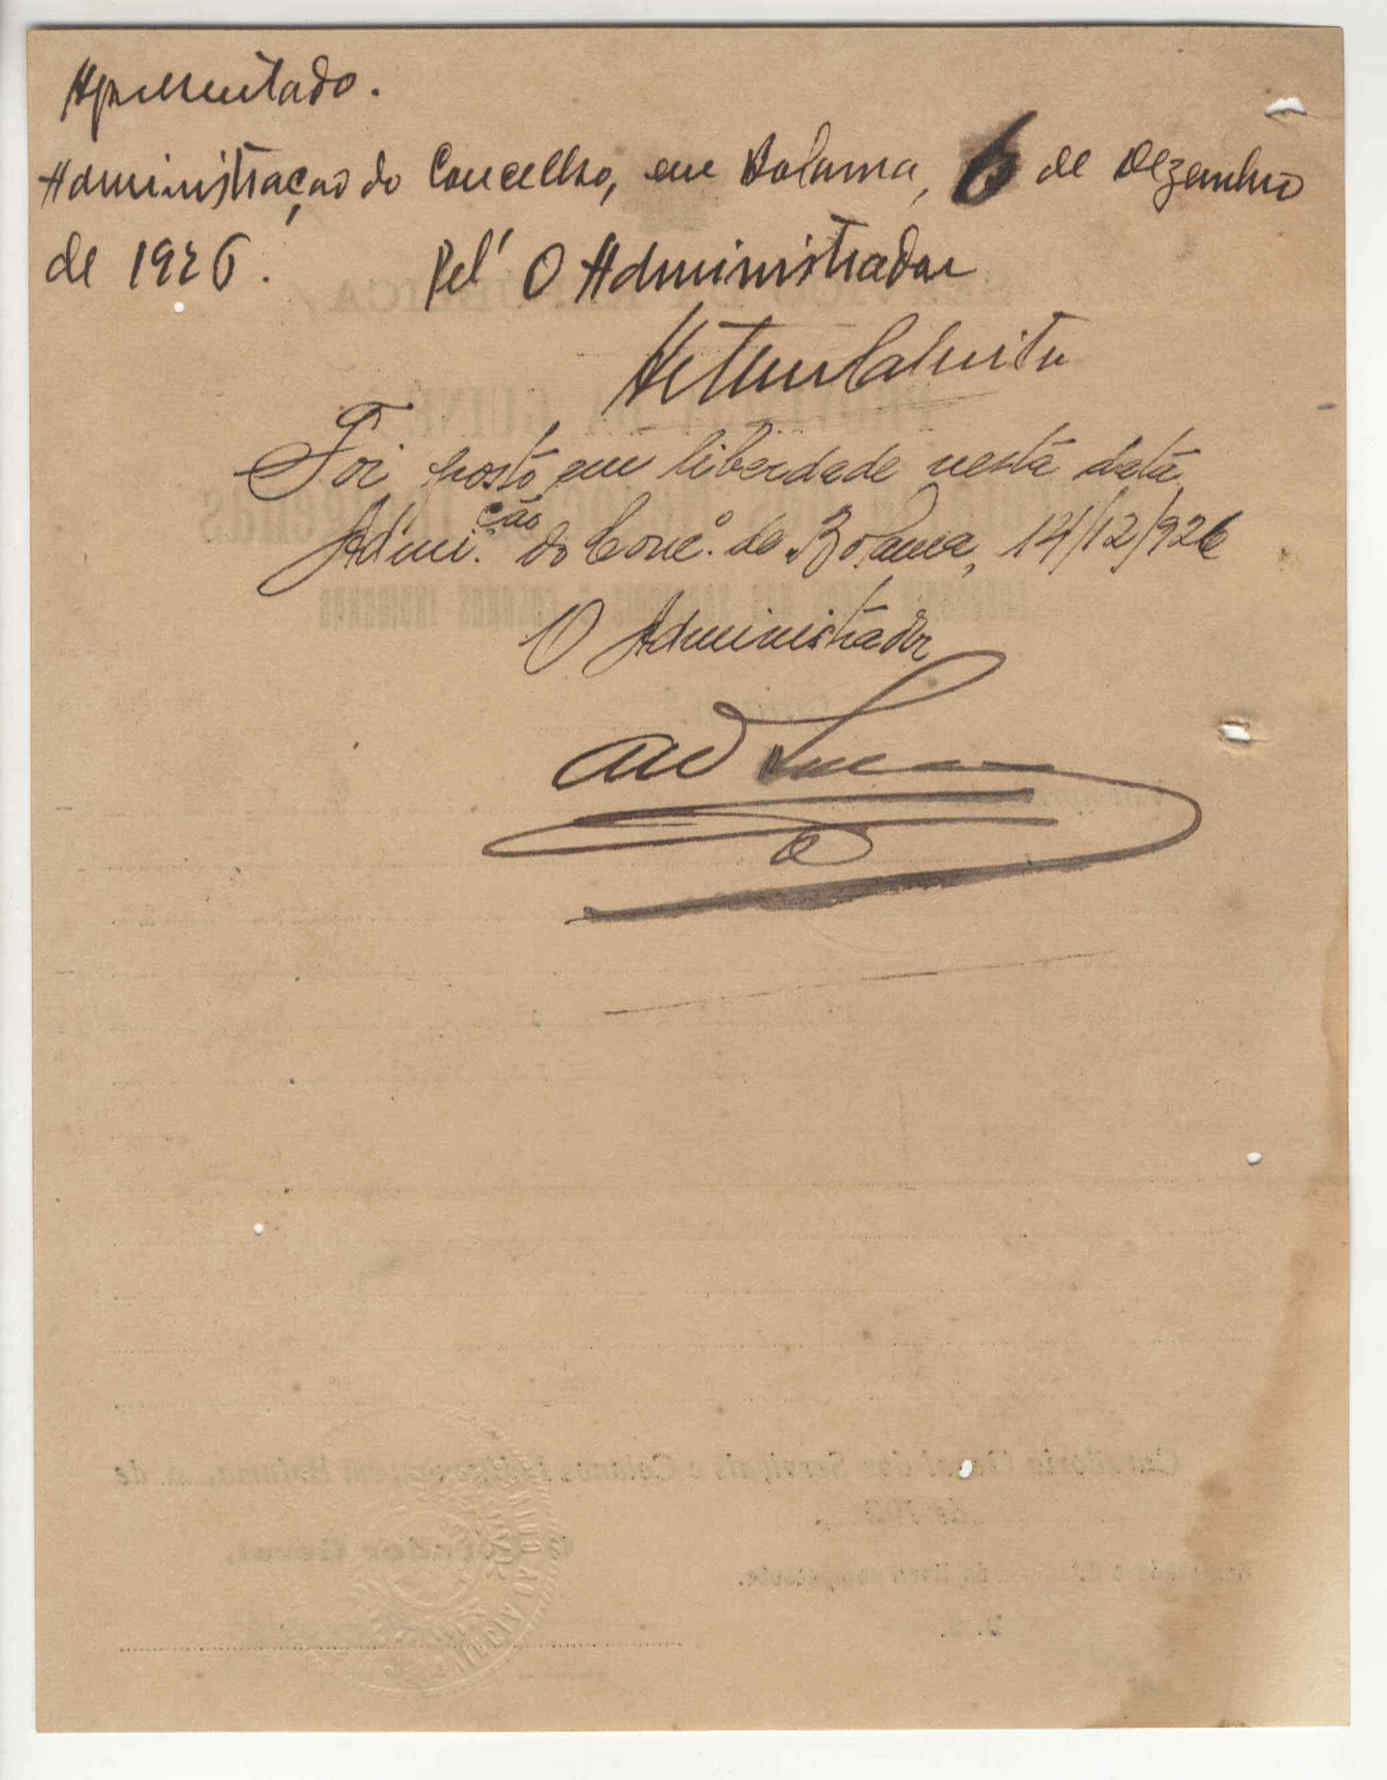 Apresentado.
Administração do Concelho, em Bolama, 6 de Dezembro
de 1926. Pel' O Administrador
Foi posto em liberdade nesta data
Admi.ção do Conc.º de Bolama, 14/12/926
O Administrador